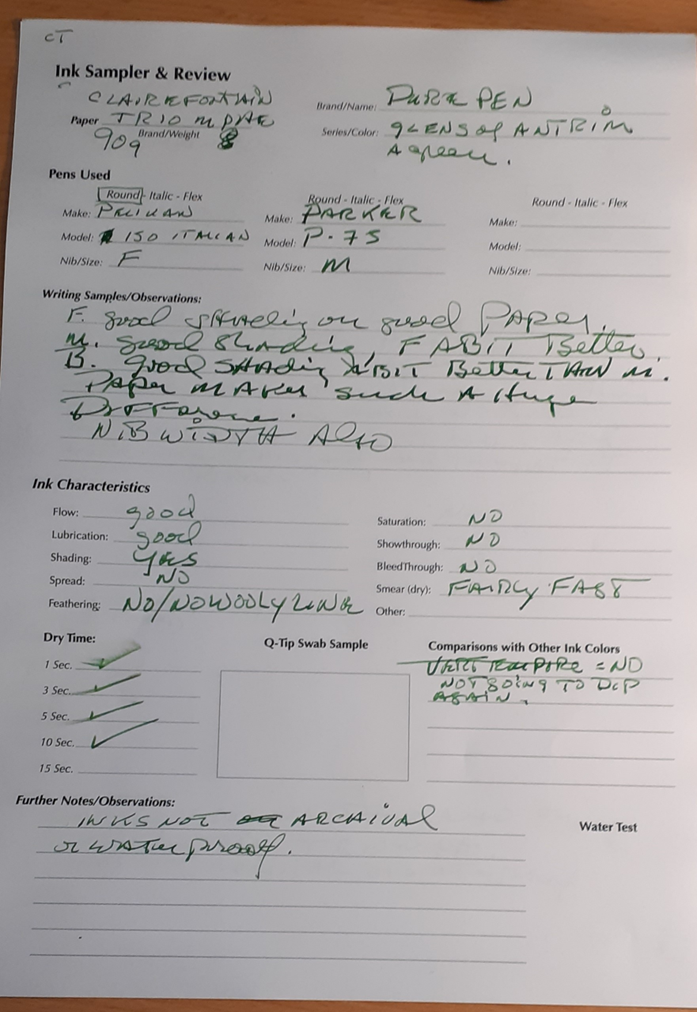 CT
Ink Sampler & Review
CLAIREFONTAIN
Paper TRIOMPHE
Brand/Weight
90g
Brand/Name: PURE PEN
Series/Color: GLENS of ANTRIM
A green.
Pens Used
Round - Italic - Flex
Make: PELIKAN
Model: 150 ITALIAN
Nib/Size: F
Round - Italic - Flex
Make: PARKER
Model: P-75
Nib/Size: M
Round - Italic - Flex
Make:
Model:
Nib/Size:
Writing Samples/Observations:
F. good shading on good Paper.
M. good Shading, A BIT Better.
B. good SHADing A BIT Better THAN M.
Paper MAKES such A Huge
Difference.
NIB WIDTH Also
Ink Characteristics
Flow: good
Lubrication: good
Shading: Yes
Spread: NO
Feathering: NO/NO WOOLY LINE
Saturation: NO
Showthrough: NO
BleedThrough: NO
Smear (dry): FAIRLY FAST
Other:
Dry Time:
1 Sec.
3 Sec.
5 Sec.
10 Sec.
15 Sec.
Q-Tip Swab Sample
Comparisons with Other Ink Colors
VERT EMPIRE = NO
NOT GOING TO DIP
AGAIN.
Further Notes/Observations:
INKS NOT ARCHIVAL
or waterproof.
Water Test